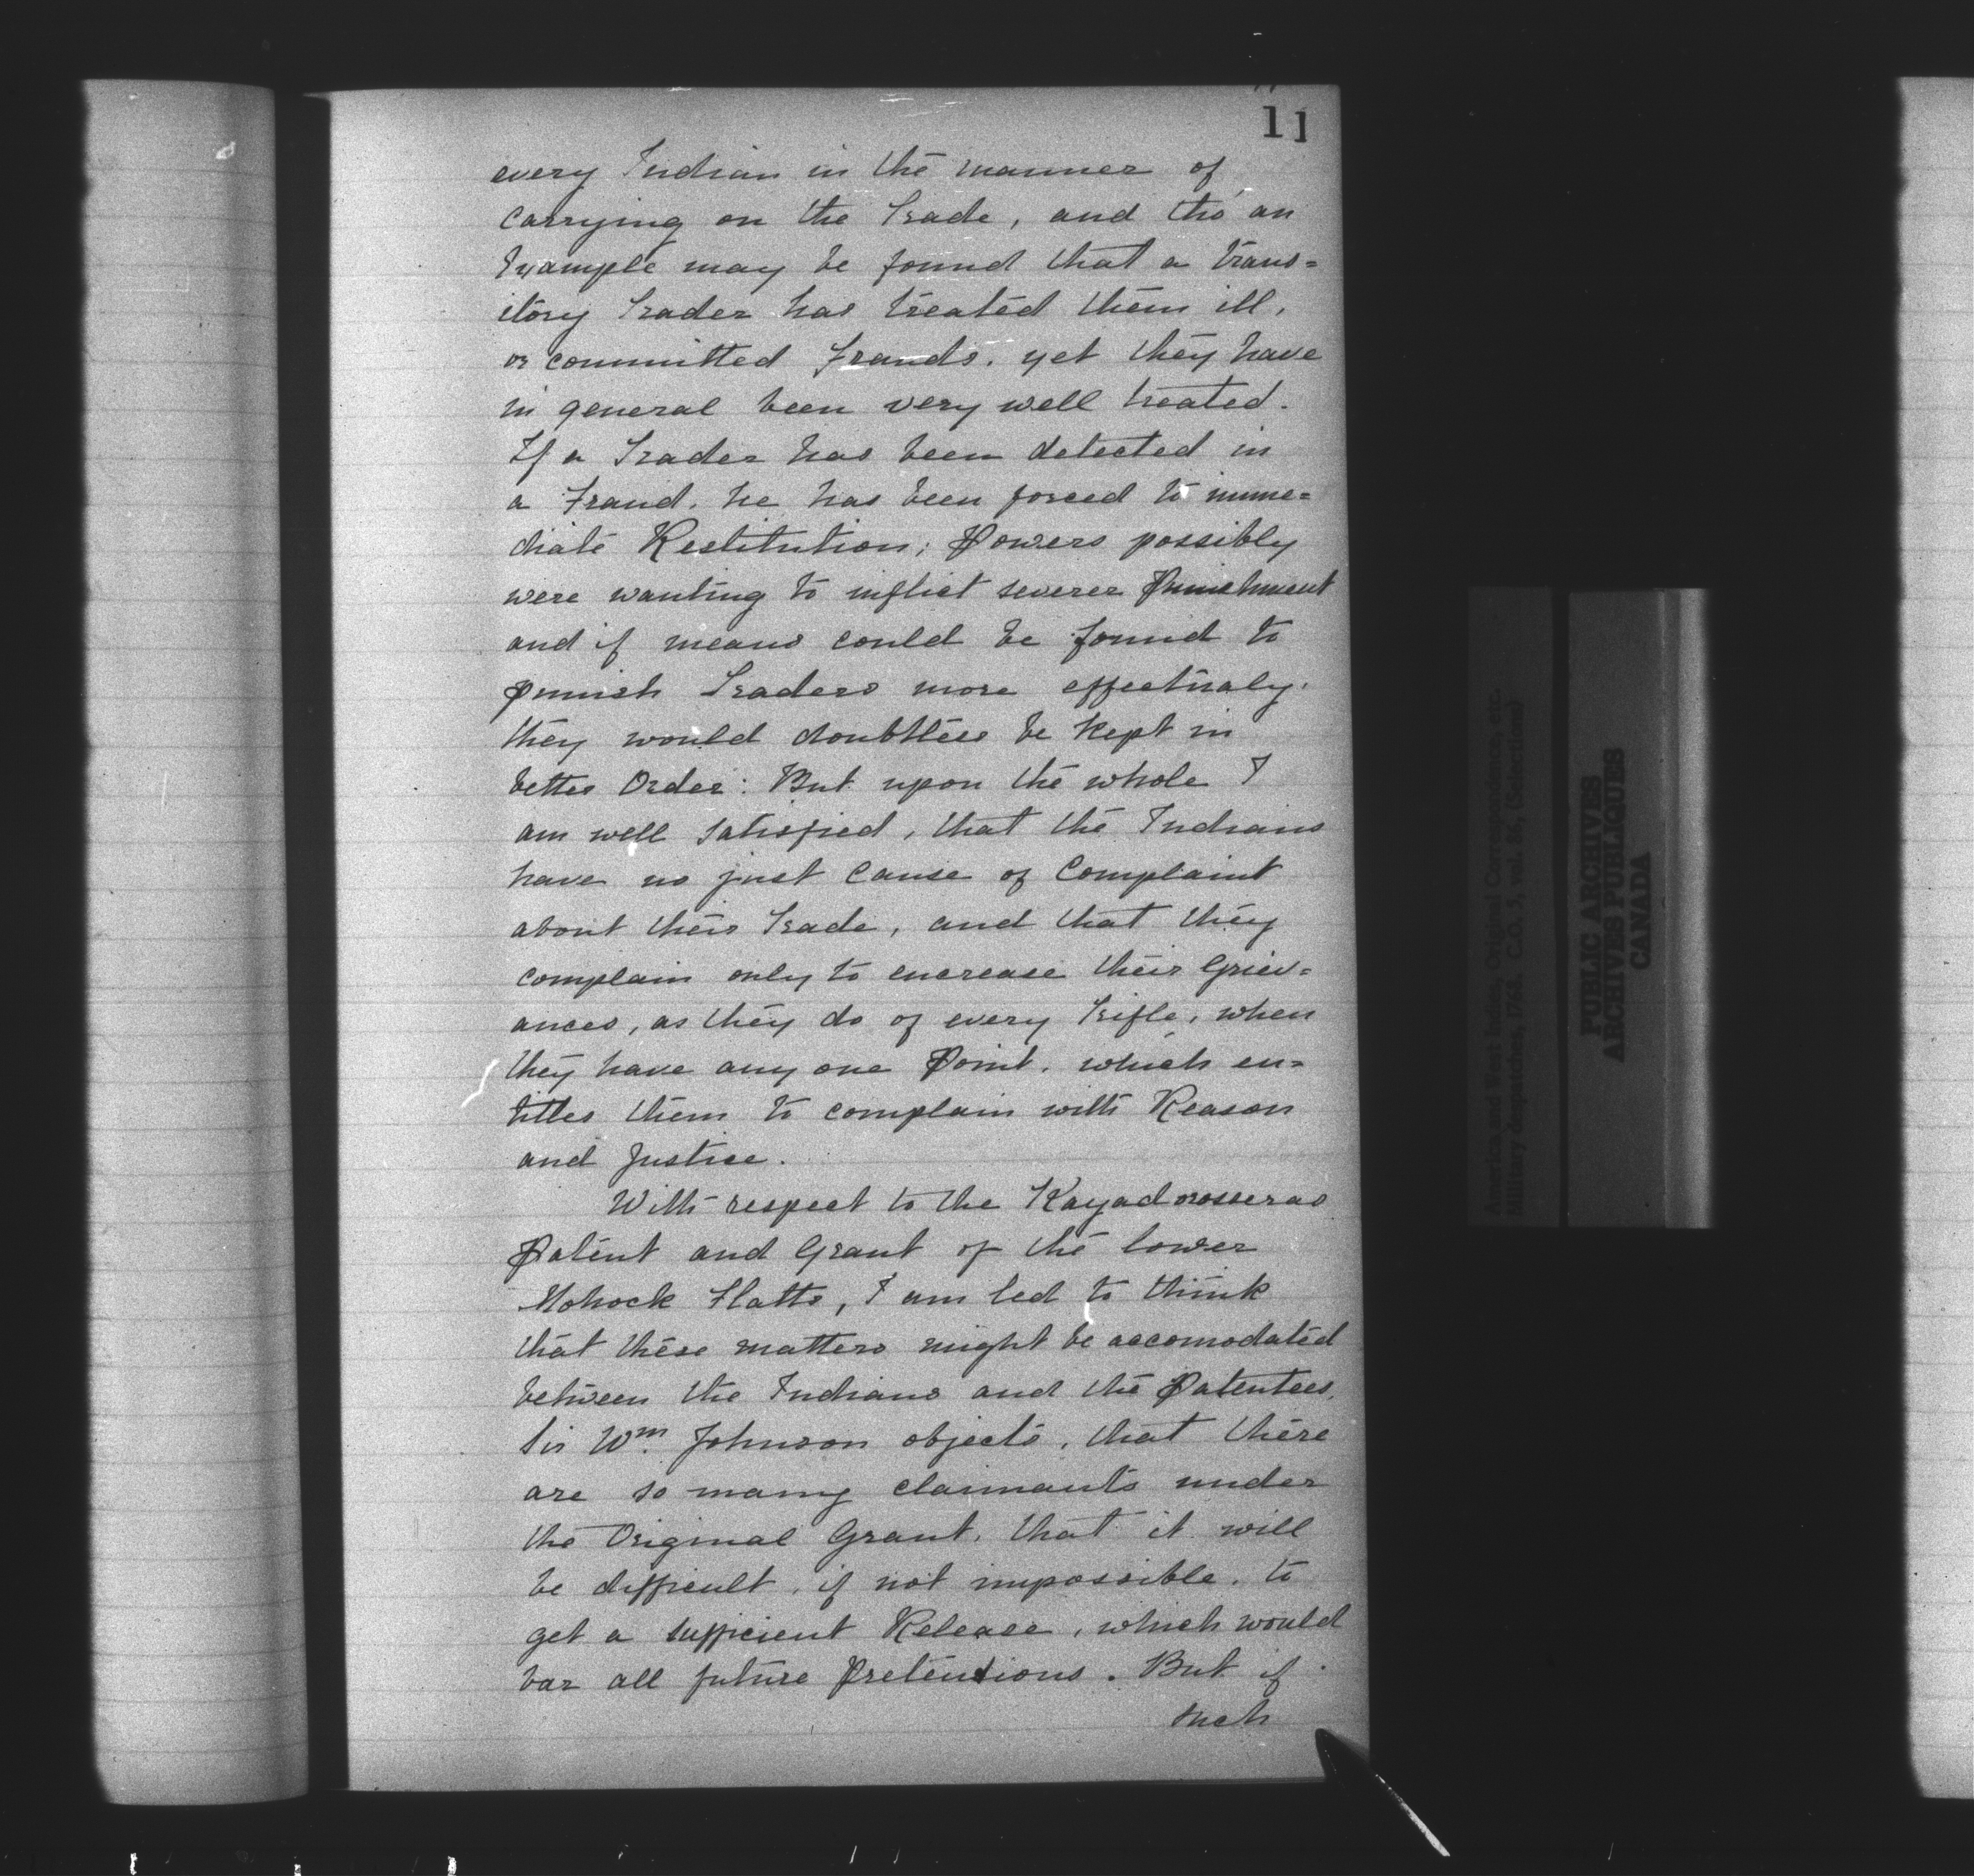 11
every Indian in the manner of
carrying on the Trade, and tho' an
Example may be found that a trans=
itory Trader has treated them ill,
or committed Frauds, yet they have
in general been very well treated.
If a Trader has been detected in
a Fraud, he has been forced to imme=
diate Restitution; Powers possibly
were wanting to inflict severer Punishment
and if means could be found to
punish Traders more effectualy,
they would doubtless be kept in
better Order: But upon the whole I
am well satisfied, that the Indians
have no just Cause of Complaint
about their Trade, and that they
complain only to encrease their Griev=
ances, as they do of every Trifle, when
they have any one Point, which en=
titles them to complain with Reason
and Justice.
With respect to the Kayadrosseras
Patent and Grant of the lower
Mohock Flatts, I am led to think
that these matters might be accomodated
between the Indians and the Patentees,
Sir Wm. Johnson objects, that there
are so many claimants under
the Original Grant, that it will
be difficult, if not impossible, to
get a sufficient Release, which would
bar all future Pretentions. But if
such
America and West Indies, Original Correspondence, etc.
Military despatches. 1768. C.O. 5, vol. 86, (Selected)
PUBLIC ARCHIVES
ARCHIVES PUBLIQUES
CANADA